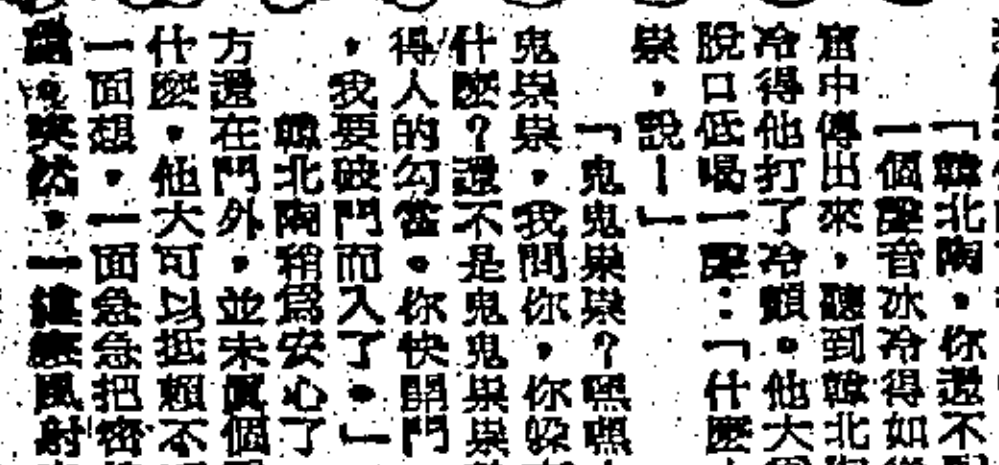 「韓北陶,你還不
一個聲音冰冷得如
窟中傳出來,聽到韓北
冷得他打了冷顫。他大
脫口低喝一聲:「什麼
祟,說!」
「鬼鬼祟祟?嘿嘿
鬼祟祟,我問你,你躲
什麼?還不是鬼鬼祟祟
得人的勾當。你快開門
,我要破門而入了。」
韓北陶稍爲安心了
方還在門外,並未真個
什麼,他大可以抵賴不
一面想,一面急急把密
突然,一縷 風射